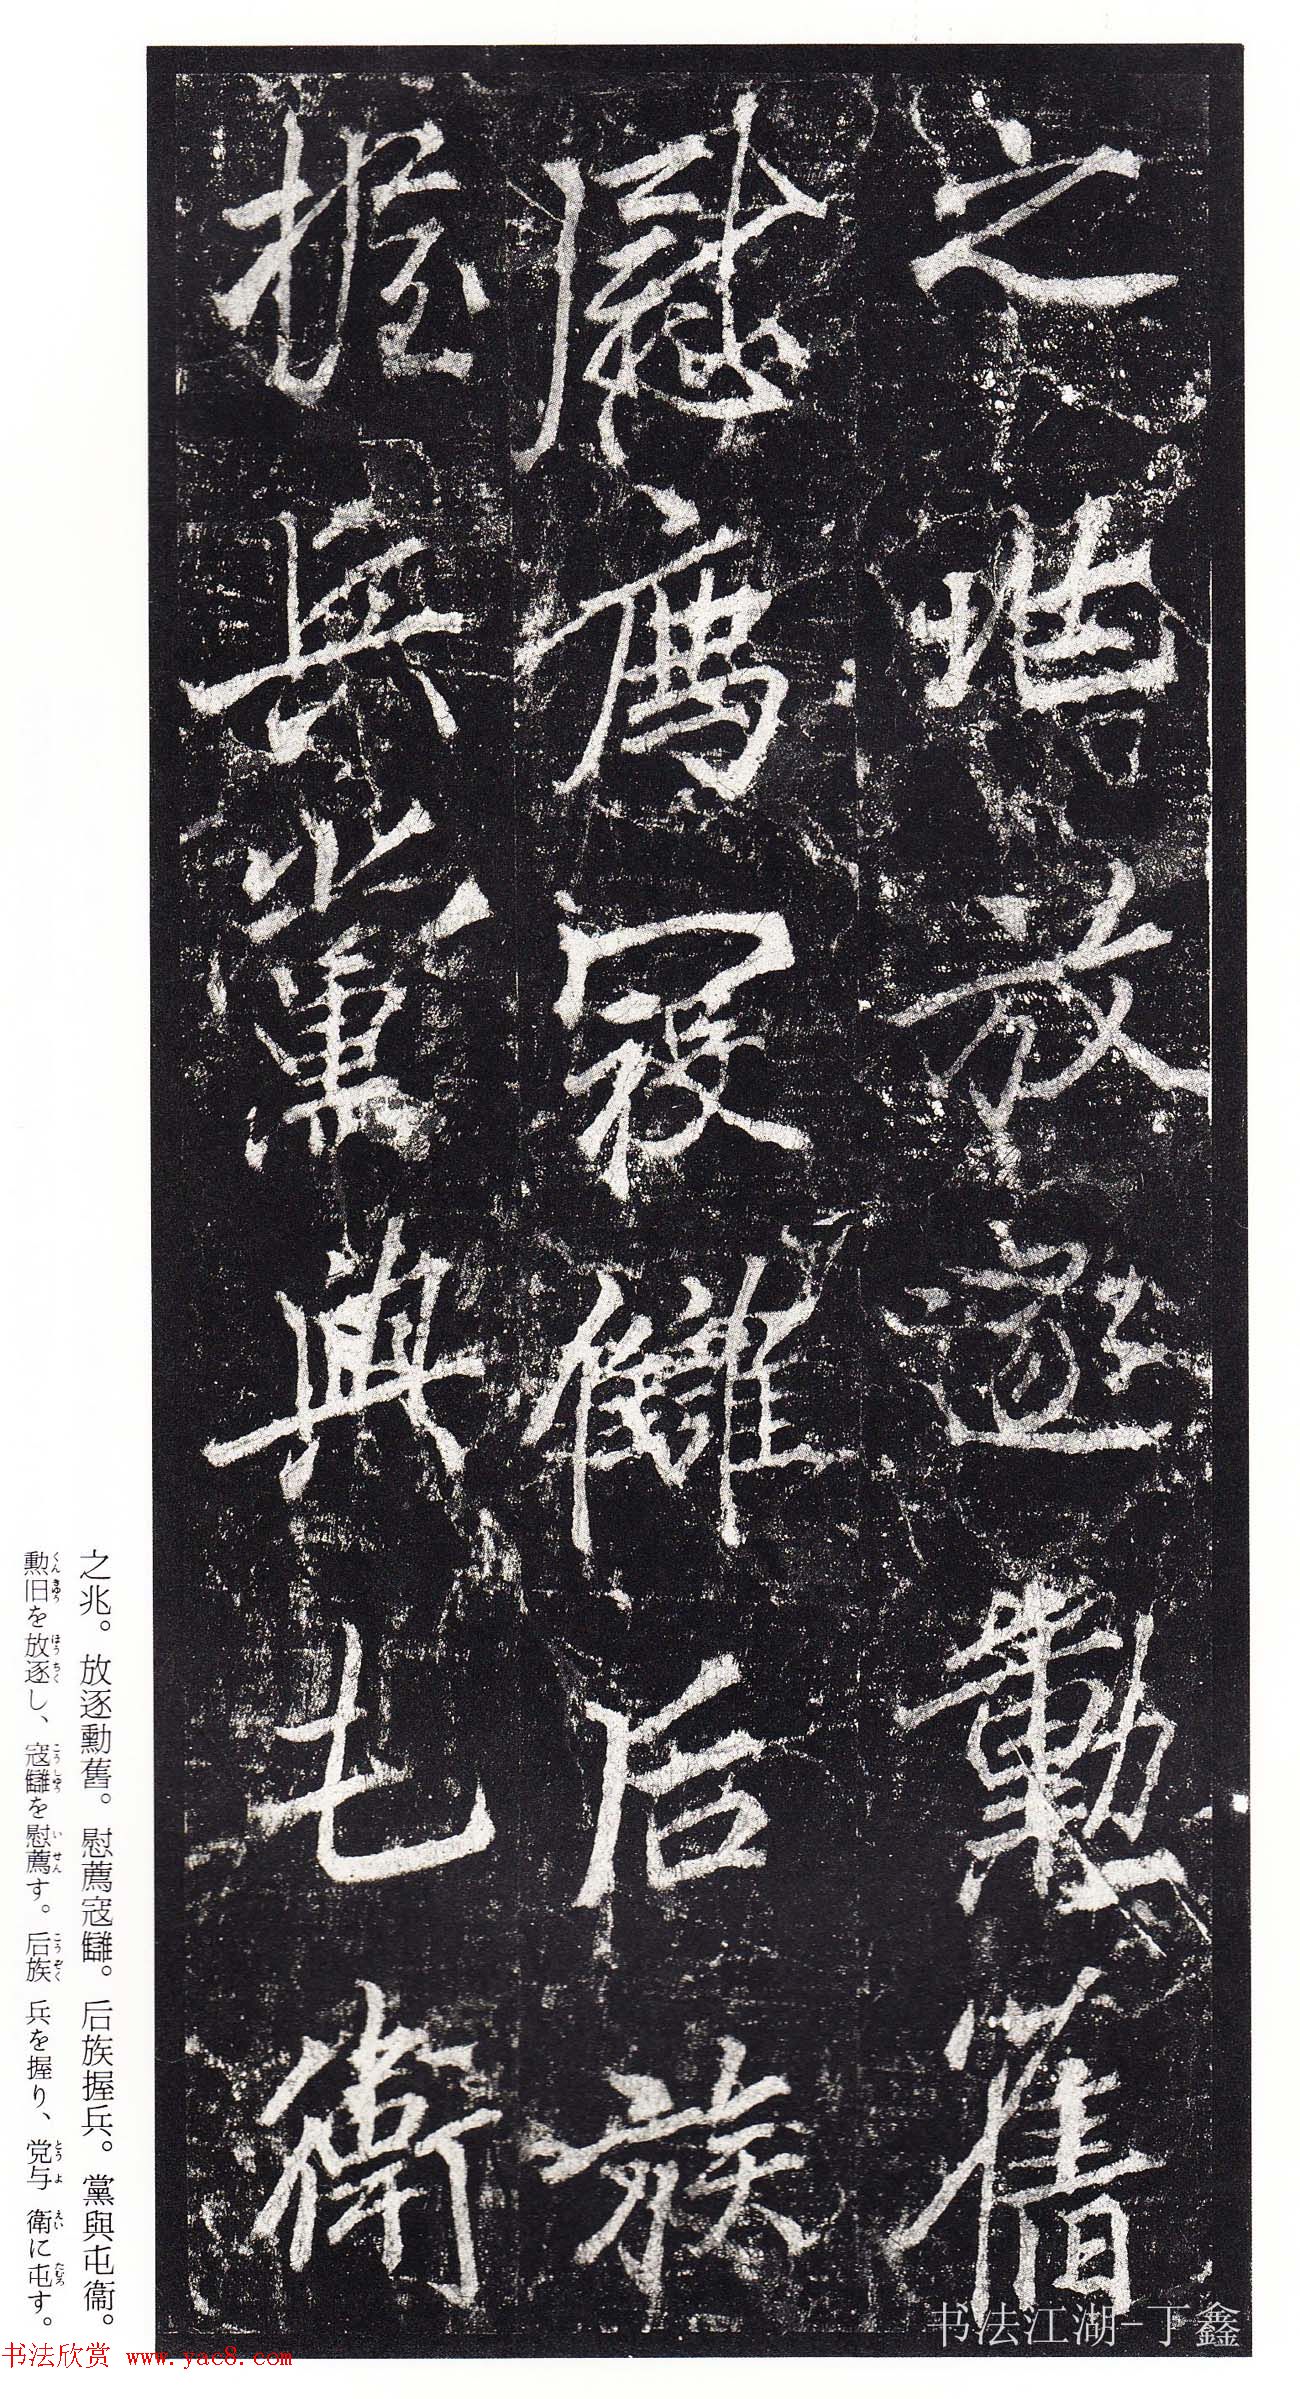 之兆放逐勳舊
慰薦寇讎后族
握兵黨與屯衛
之兆。放逐勳舊。慰薦寇讎。后族握兵。黨與屯衞。
勲旧を放逐し、寇讎を慰薦す。后族 兵を握り、党与 衛に屯す。
书法江湖-丁鑫
书法欣赏 www.yac8.com